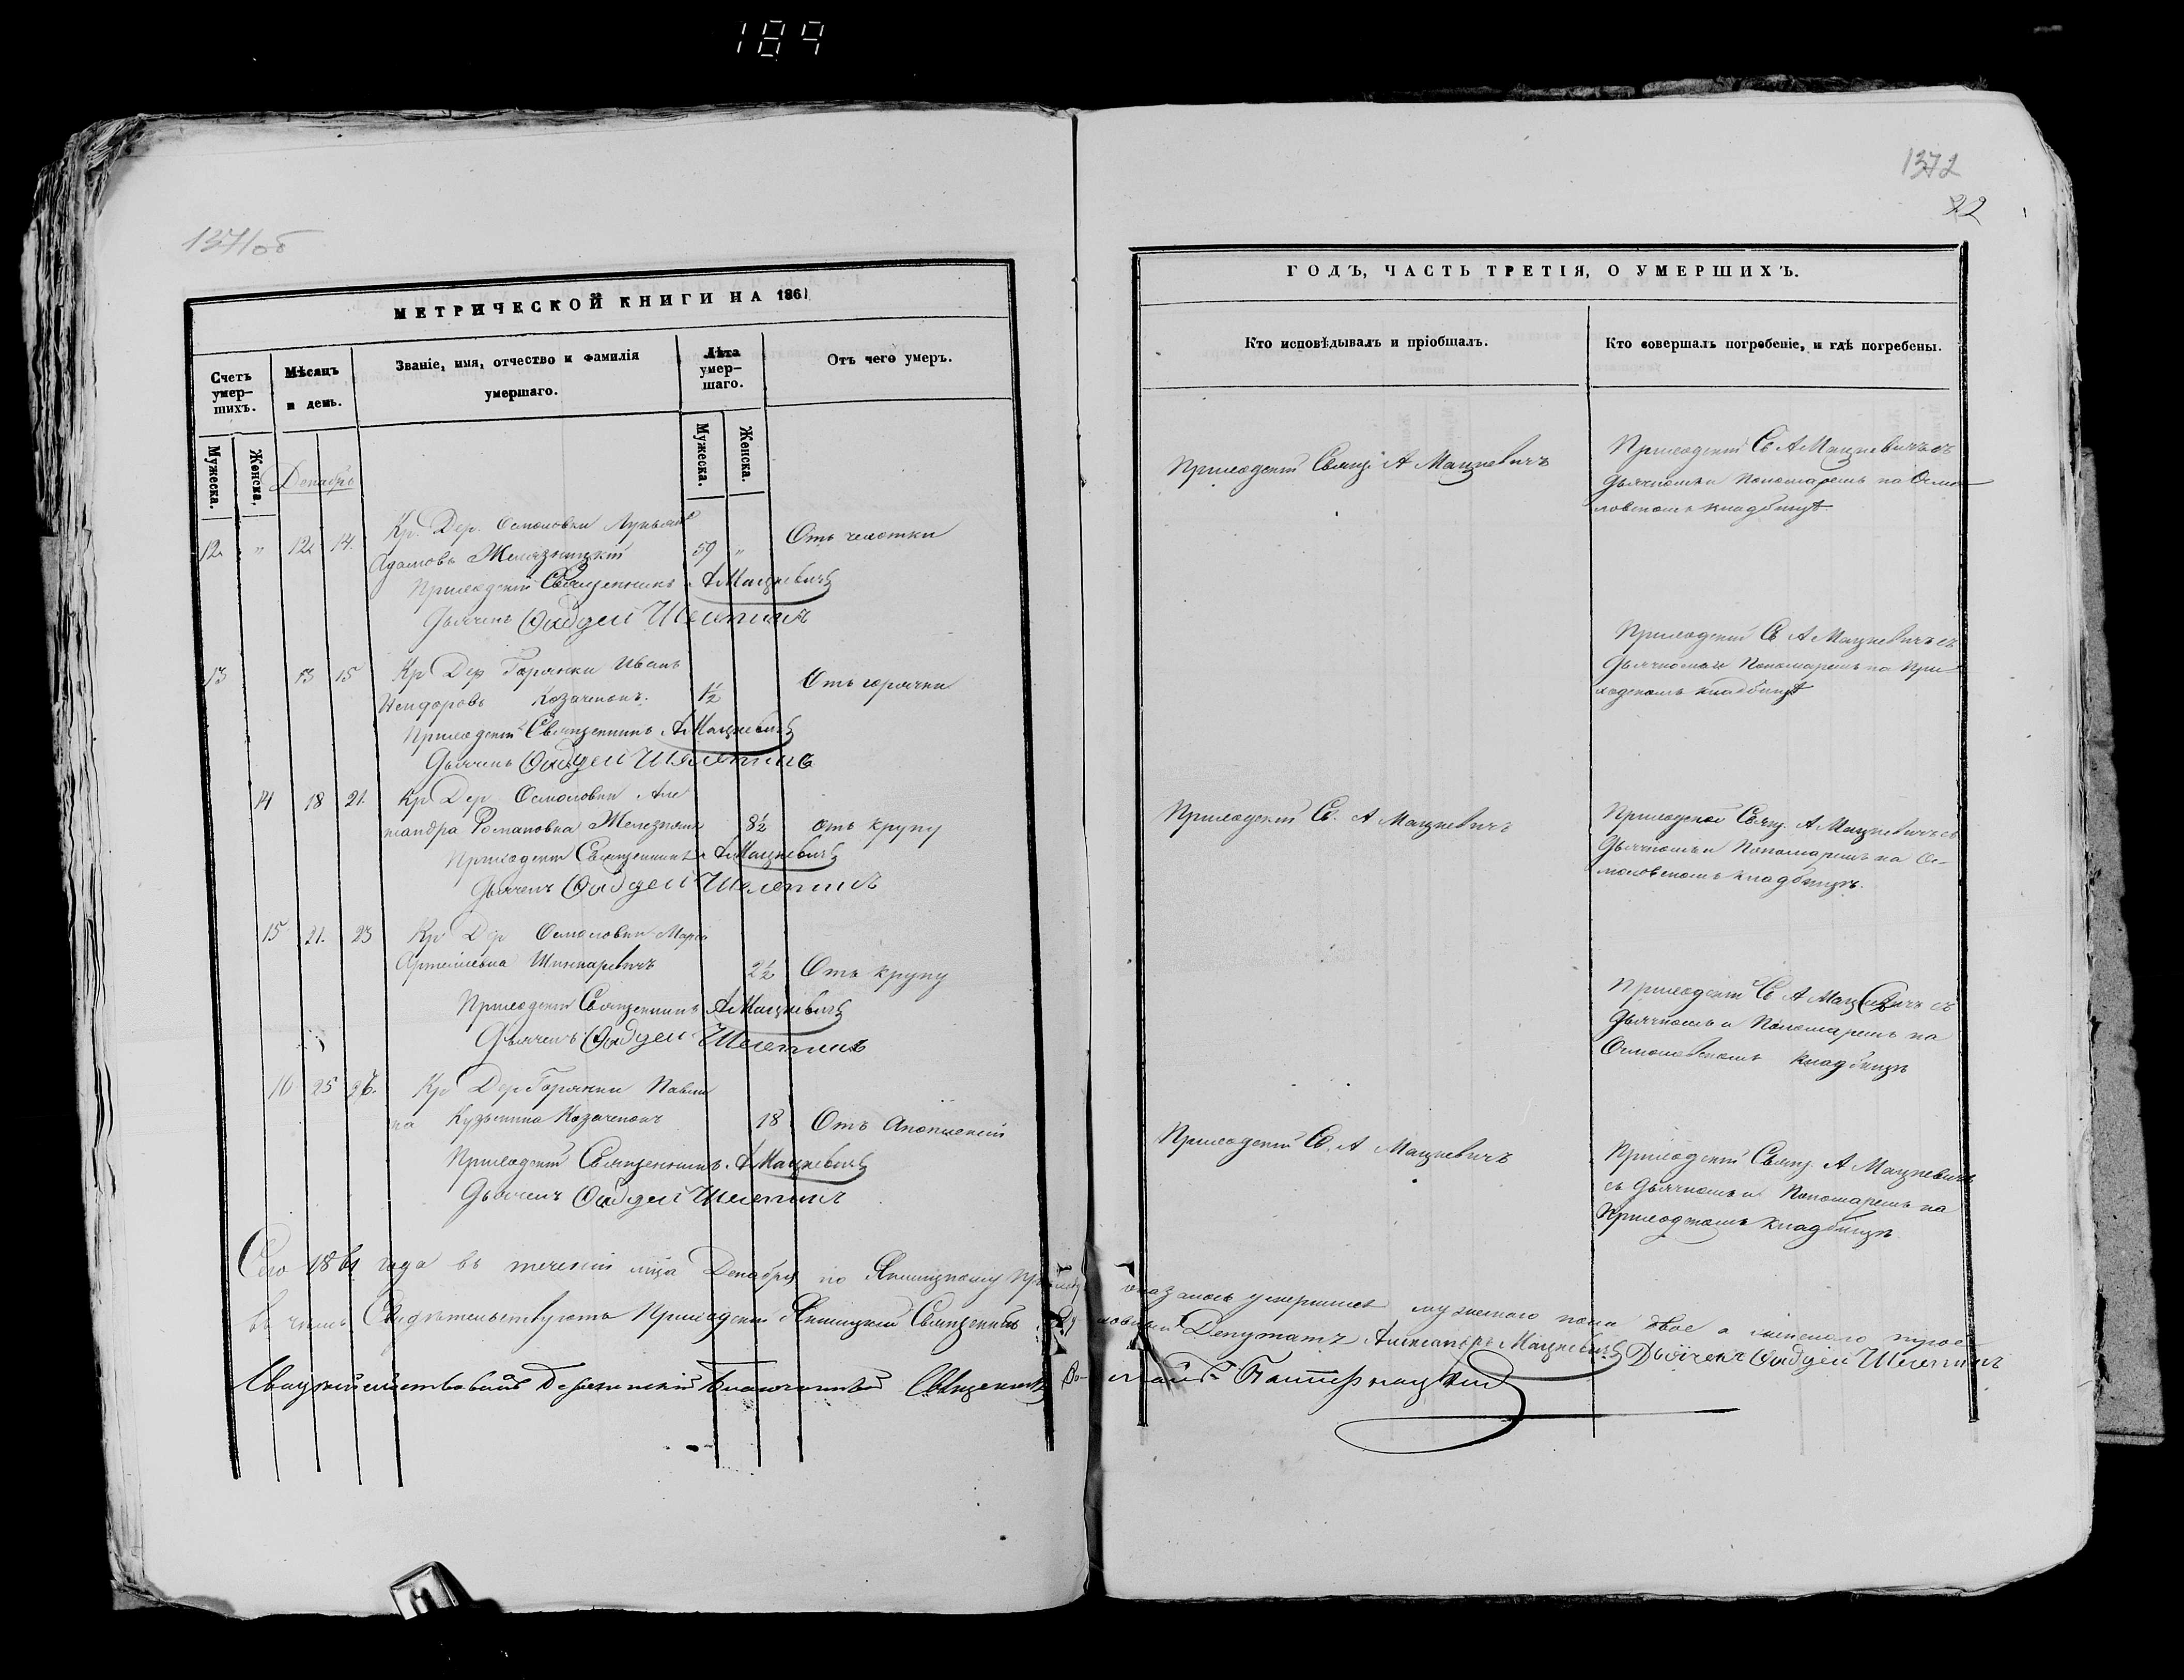 189
1371об
МЕТРИЧЕСКОЙ КНИГИ НА 1861
Счетъ умер-шихъ.
Мѣсяцъ и день.
Званіе, имя, отчество и фамилія умершаго.
Лѣта умер-шаго.
Отъ чего умеръ.
Мужеска.
Женска.
Мужеска.
Женска.
Декабрь
12. " 12 14. Кр. Дер. Осмоловки Лукьянъ
Адамовъ 59 " Отъ чахотки
Приходскій Священникъ А Мацкевичъ
Дьячекъ Фадей Шелепинъ
13 13 15 Кр Дер Горянки Иванъ
Никифоровъ Козаченокъ. 1½ Отъ горячки
Приходскій Священникъ А Мацкевичъ
Дьячекъ Фадей Шелепинъ
14 18 21. Кр Дер Осмоловки Але
ксандра Романовна 8½ отъ крупу
Приходскій Священникъ А Мацкевичъ
Дьячекъ Фадей Шелепинъ
15 21. 23 Кр Дер Осмоловки Марія
Артемьевна 2½ Отъ крупу
Приходскій Священникъ А Мацкевичъ
Дьячекъ Фадей Шелепинъ
16 25 26. Кр Дер Горянки Павли
на Кузьмина Козаченокъ 18 Отъ Апоплексіи
Приходскій Священникъ А Мацкевичъ
Дьячекъ Фадей Шелепинъ
1372
22
ГОДЪ, ЧАСТЬ ТРЕТІЯ, О УМЕРШИХЪ.
Кто исповѣдывалъ и пріобщалъ.
Кто совершалъ погребеніе, и гдѣ погребены.
Приходскій Свящ. А Мацкевичъ
Приходскій Св А Мацкевичъ съ
дьячкомъ и Пономаремъ на Осмо-
ловскомъ кладбищѣ
Приходскій Св А Мацкевичъ съ
Дьячкомъ и Пономаремъ на При-
ходскомъ кладбищѣ
Приходскій Св. А Мацкевичъ
Приходскій Свящ. А Мацкевичъ съ
Дьячкомъ и Пономаремъ на Ос-
моловскомъ кладбищѣ.
Приходскій Св А Мацкевичъ съ
Дьячкомъ и Пономаремъ на
Осмоловскомъ кладбищѣ
Приходскій Св. А Мацкевичъ
Приходскій Свящ. А Мацкевичъ
съ дьячкомъ и Пономаремъ на
Приходскомъ кладбищѣ
Сего 1861 года въ теченіи мца Декабря по приходу оказалось умершихъ мужескаго пола двое а женскаго трое
въ чемъ Свидѣтельствуютъ Приходскій Священникъ Духовный Депутатъ Александръ Мацкевичъ Дьячекъ Фадей Шелепинъ
Свидѣтельствовалъ Благочинный Священникъ